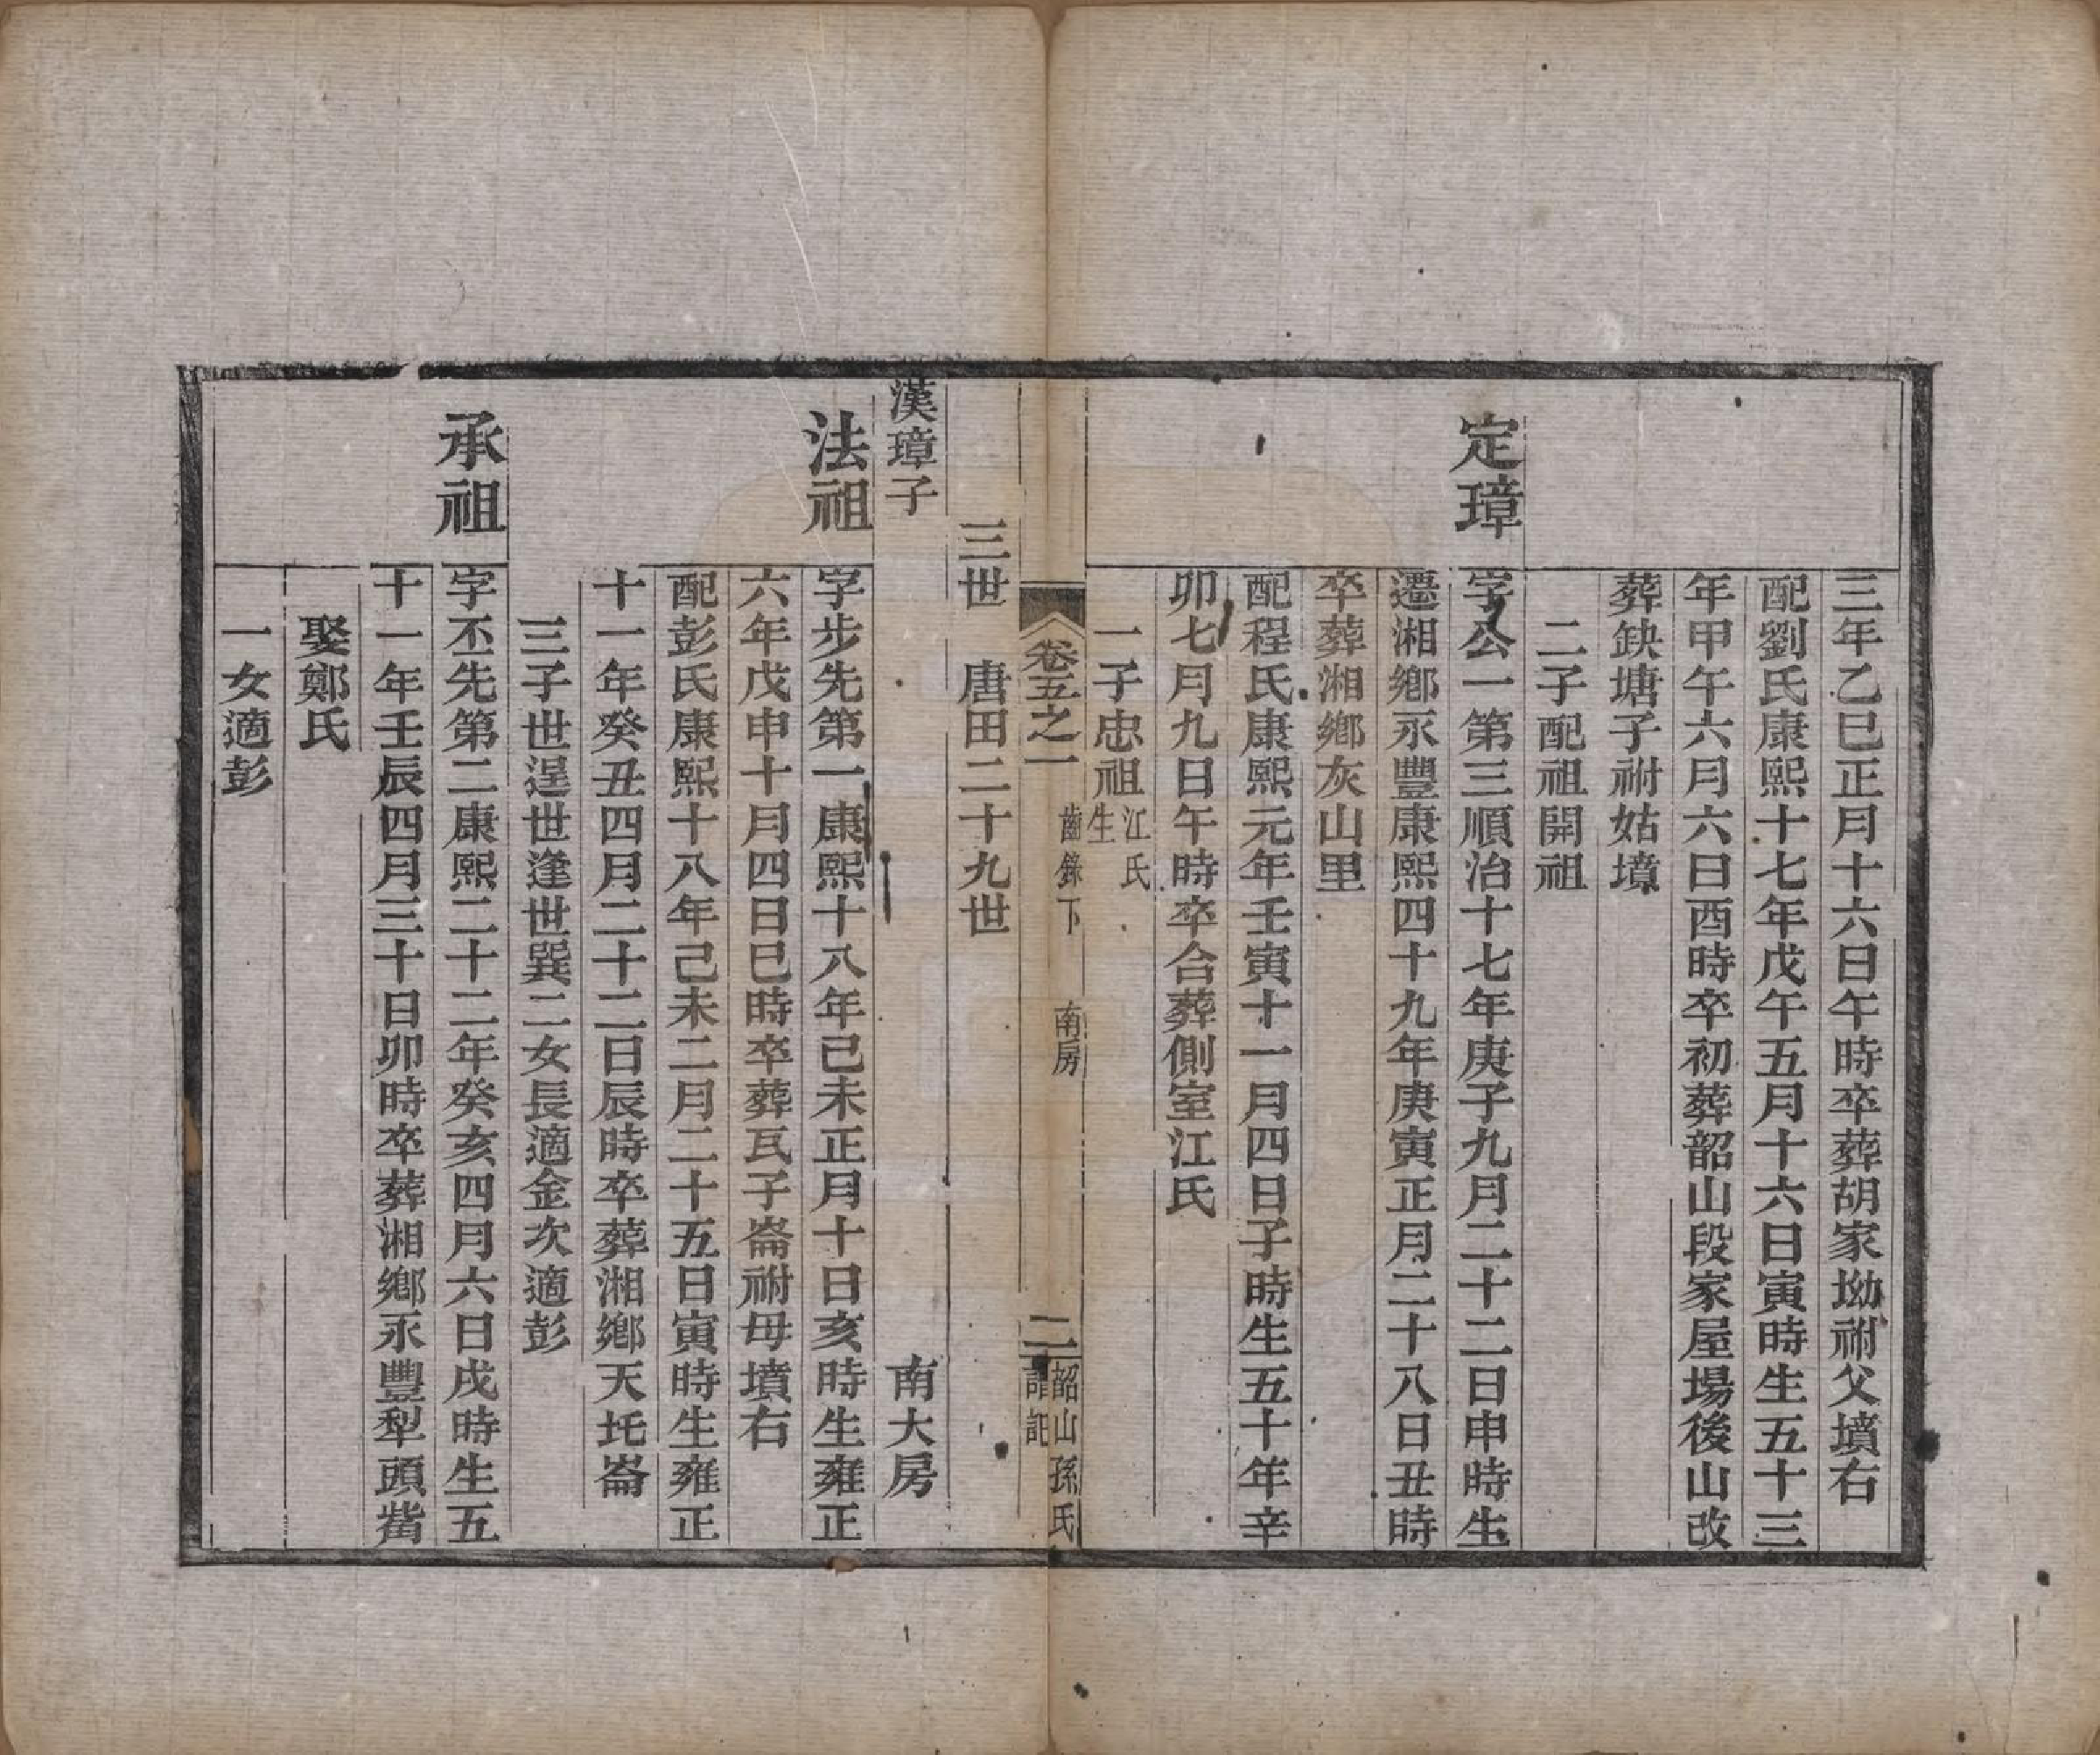 三年乙巳正月十六日午時卒葬胡家坳祔父墳右
配劉氏康熙十七年戊午五月十六日寅時生五十三
年甲午六月六日酉時卒初葬韶山段家屋場後山改
葬缺塘子祔姑墳
二子配祖開祖
定璋
字公一第三順治十七年庚子九月二十二日申時生
遷湘鄉永豐康熙四十九年庚寅正月二十八日丑時
卒葬湘鄉灰山里
配程氏康熙元年壬寅十一月四日子時生五十年辛
卯七月九日午時卒合葬側室江氏
一子忠祖江氏生
卷五之一 齒錄下 南房 二 韶山孫氏譜記
三世 唐田二十九世
漢璋子 南大房
法祖
字步先第一康熙十八年己未正月十日亥時生雍正
六年戊申十月四日巳時卒葬瓦子崙祔母墳右
配彭氏康熙十八年己未二月二十五日寅時生雍正
十一年癸丑四月二十二日辰時卒葬湘鄉天圫崙
三子世逞世逢世巽二女長適金次適彭
承祖
字丕先第二康熙二十二年癸亥四月六日戌時生五
十一年壬辰四月三十日卯時卒葬湘鄉永豐犁頭觜
娶鄭氏
一女適彭